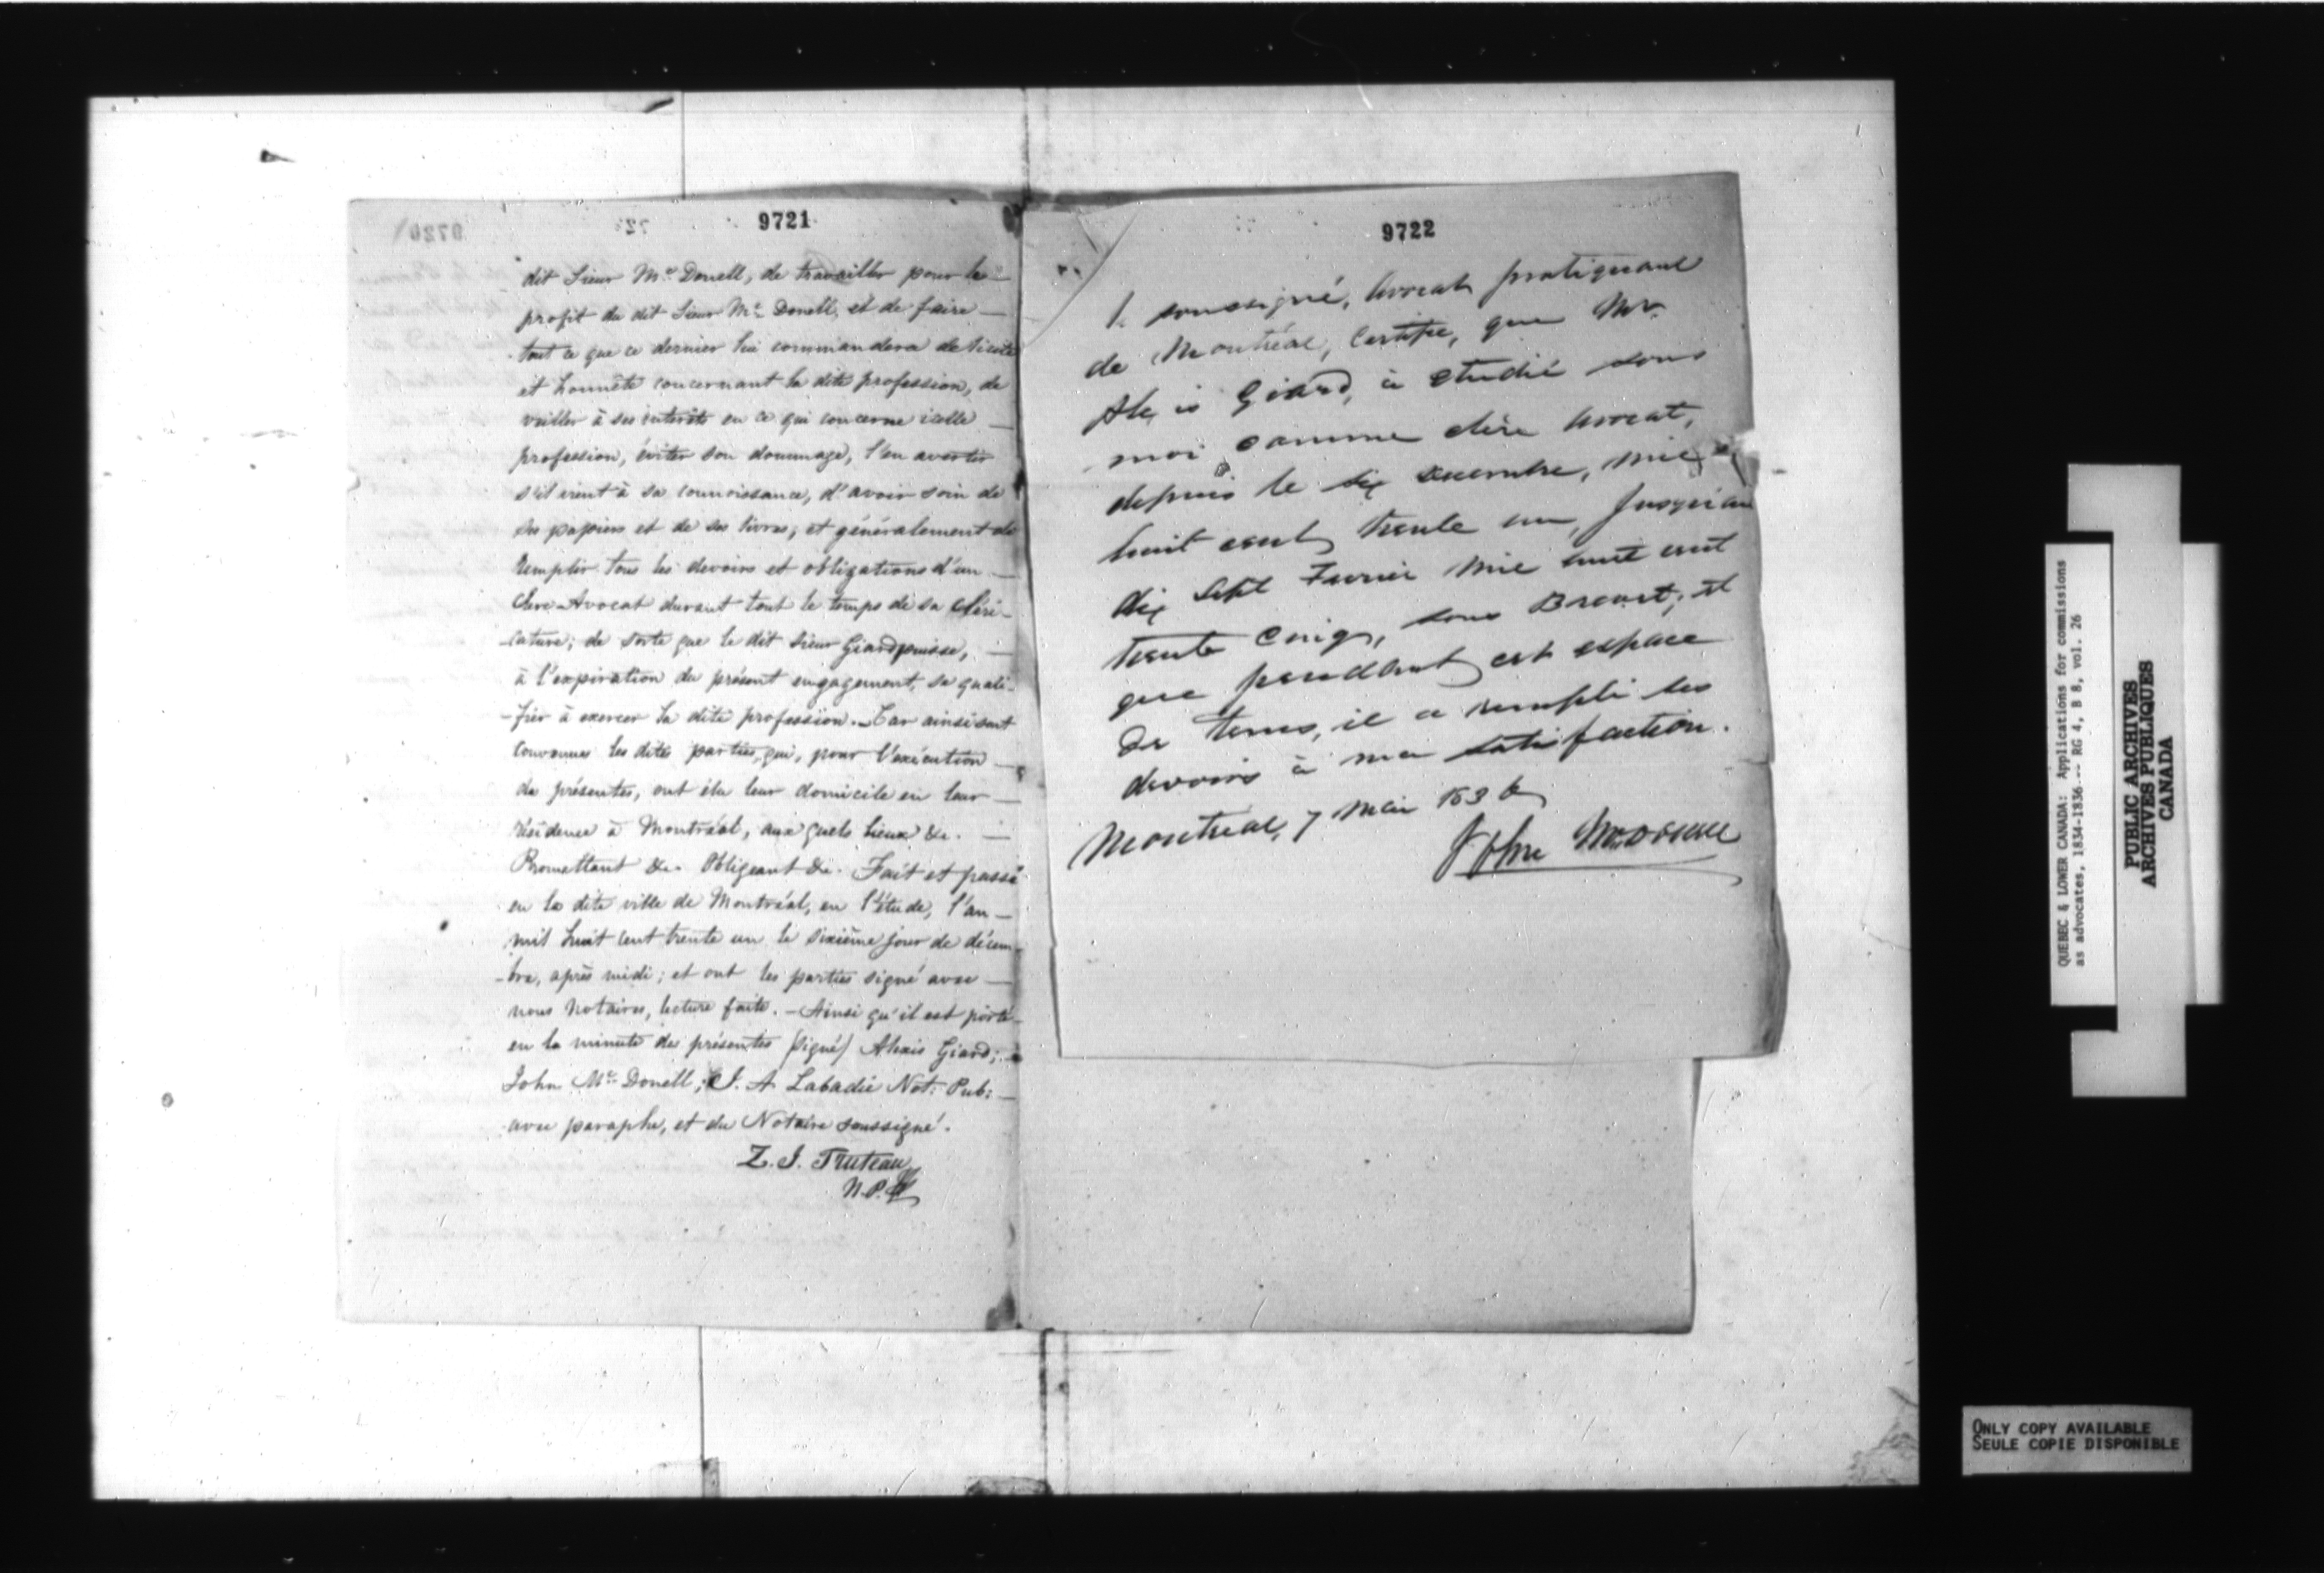 9721
dit Sieur Mc. Donell, de travailler pour le
profit du dit Sieur Mc. Donell, et de faire
tout ce que ce dernier lui commandera de licite
et honnête concernant la dite profession, de
veiller à ses intérêts en ce qui concerne icelle
profession, éviter son dommage, l'en avertir
s'il vient à sa connoissance, d'avoir soin de
ses papiers et de ses livres; et généralement de
remplir tous les devoirs et obligations d'un
Clerc-Avocat durant tout le temps de sa cléri-
-cature; de sorte que le dit Sieur Giard puisse,
à l'expiration du présent engagement, se quali-
-fier à exercer la dite profession. Car ainsi sont
convenues les dites parties, qui, pour l'exécution
des présentes, ont élu leur domicile en leur
résidence à Montréal, aux quels lieux &c.
Promettant &c. Obligeant &c. Fait et passé
en la dite ville de Montréal, en l'étude, l'an
mil huit cent trente un le sixième jour de décem-
-bre, après midi; et ont les parties signé avec
nous Notaires, lecture faite. - Ainsi qu'il est porté
en la minute des présentes (signé) Alexis Giard;
John Mc. Donell; J. A Labadie Not: Pub:
avec paraphe, et du Notaire soussigné.
Z. J. Truteau
N.P.
9722
soussigné, avocat pratiquant
de Montréal, Certifie, que Mr.
Alexis Giard, a etudié sous
moi comme clerc avocat,
depuis le six decembre, mil
huit cent trente un, jusqu'au
dix sept Fevrier mil huit cent
trente cinq, sous Brevet; et
que pendant cet espace
de tems, il a rempli ses
devoirs à ma satisfaction.
Montreal, 7 Mai 1836
John McDonell
QUEBEC & LOWER CANADA: Applications for commissions
as advocates, 1834-1836 -- RG 4, B 8, vol. 26
PUBLIC ARCHIVES
ARCHIVES PUBLIQUES
CANADA
ONLY COPY AVAILABLE
SEULE COPIE DISPONIBLE